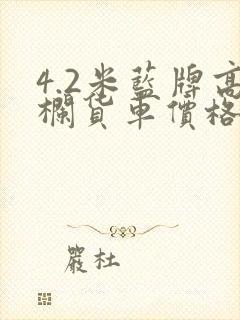 4.2米藍牌高
欄貨車價格
嚴杜